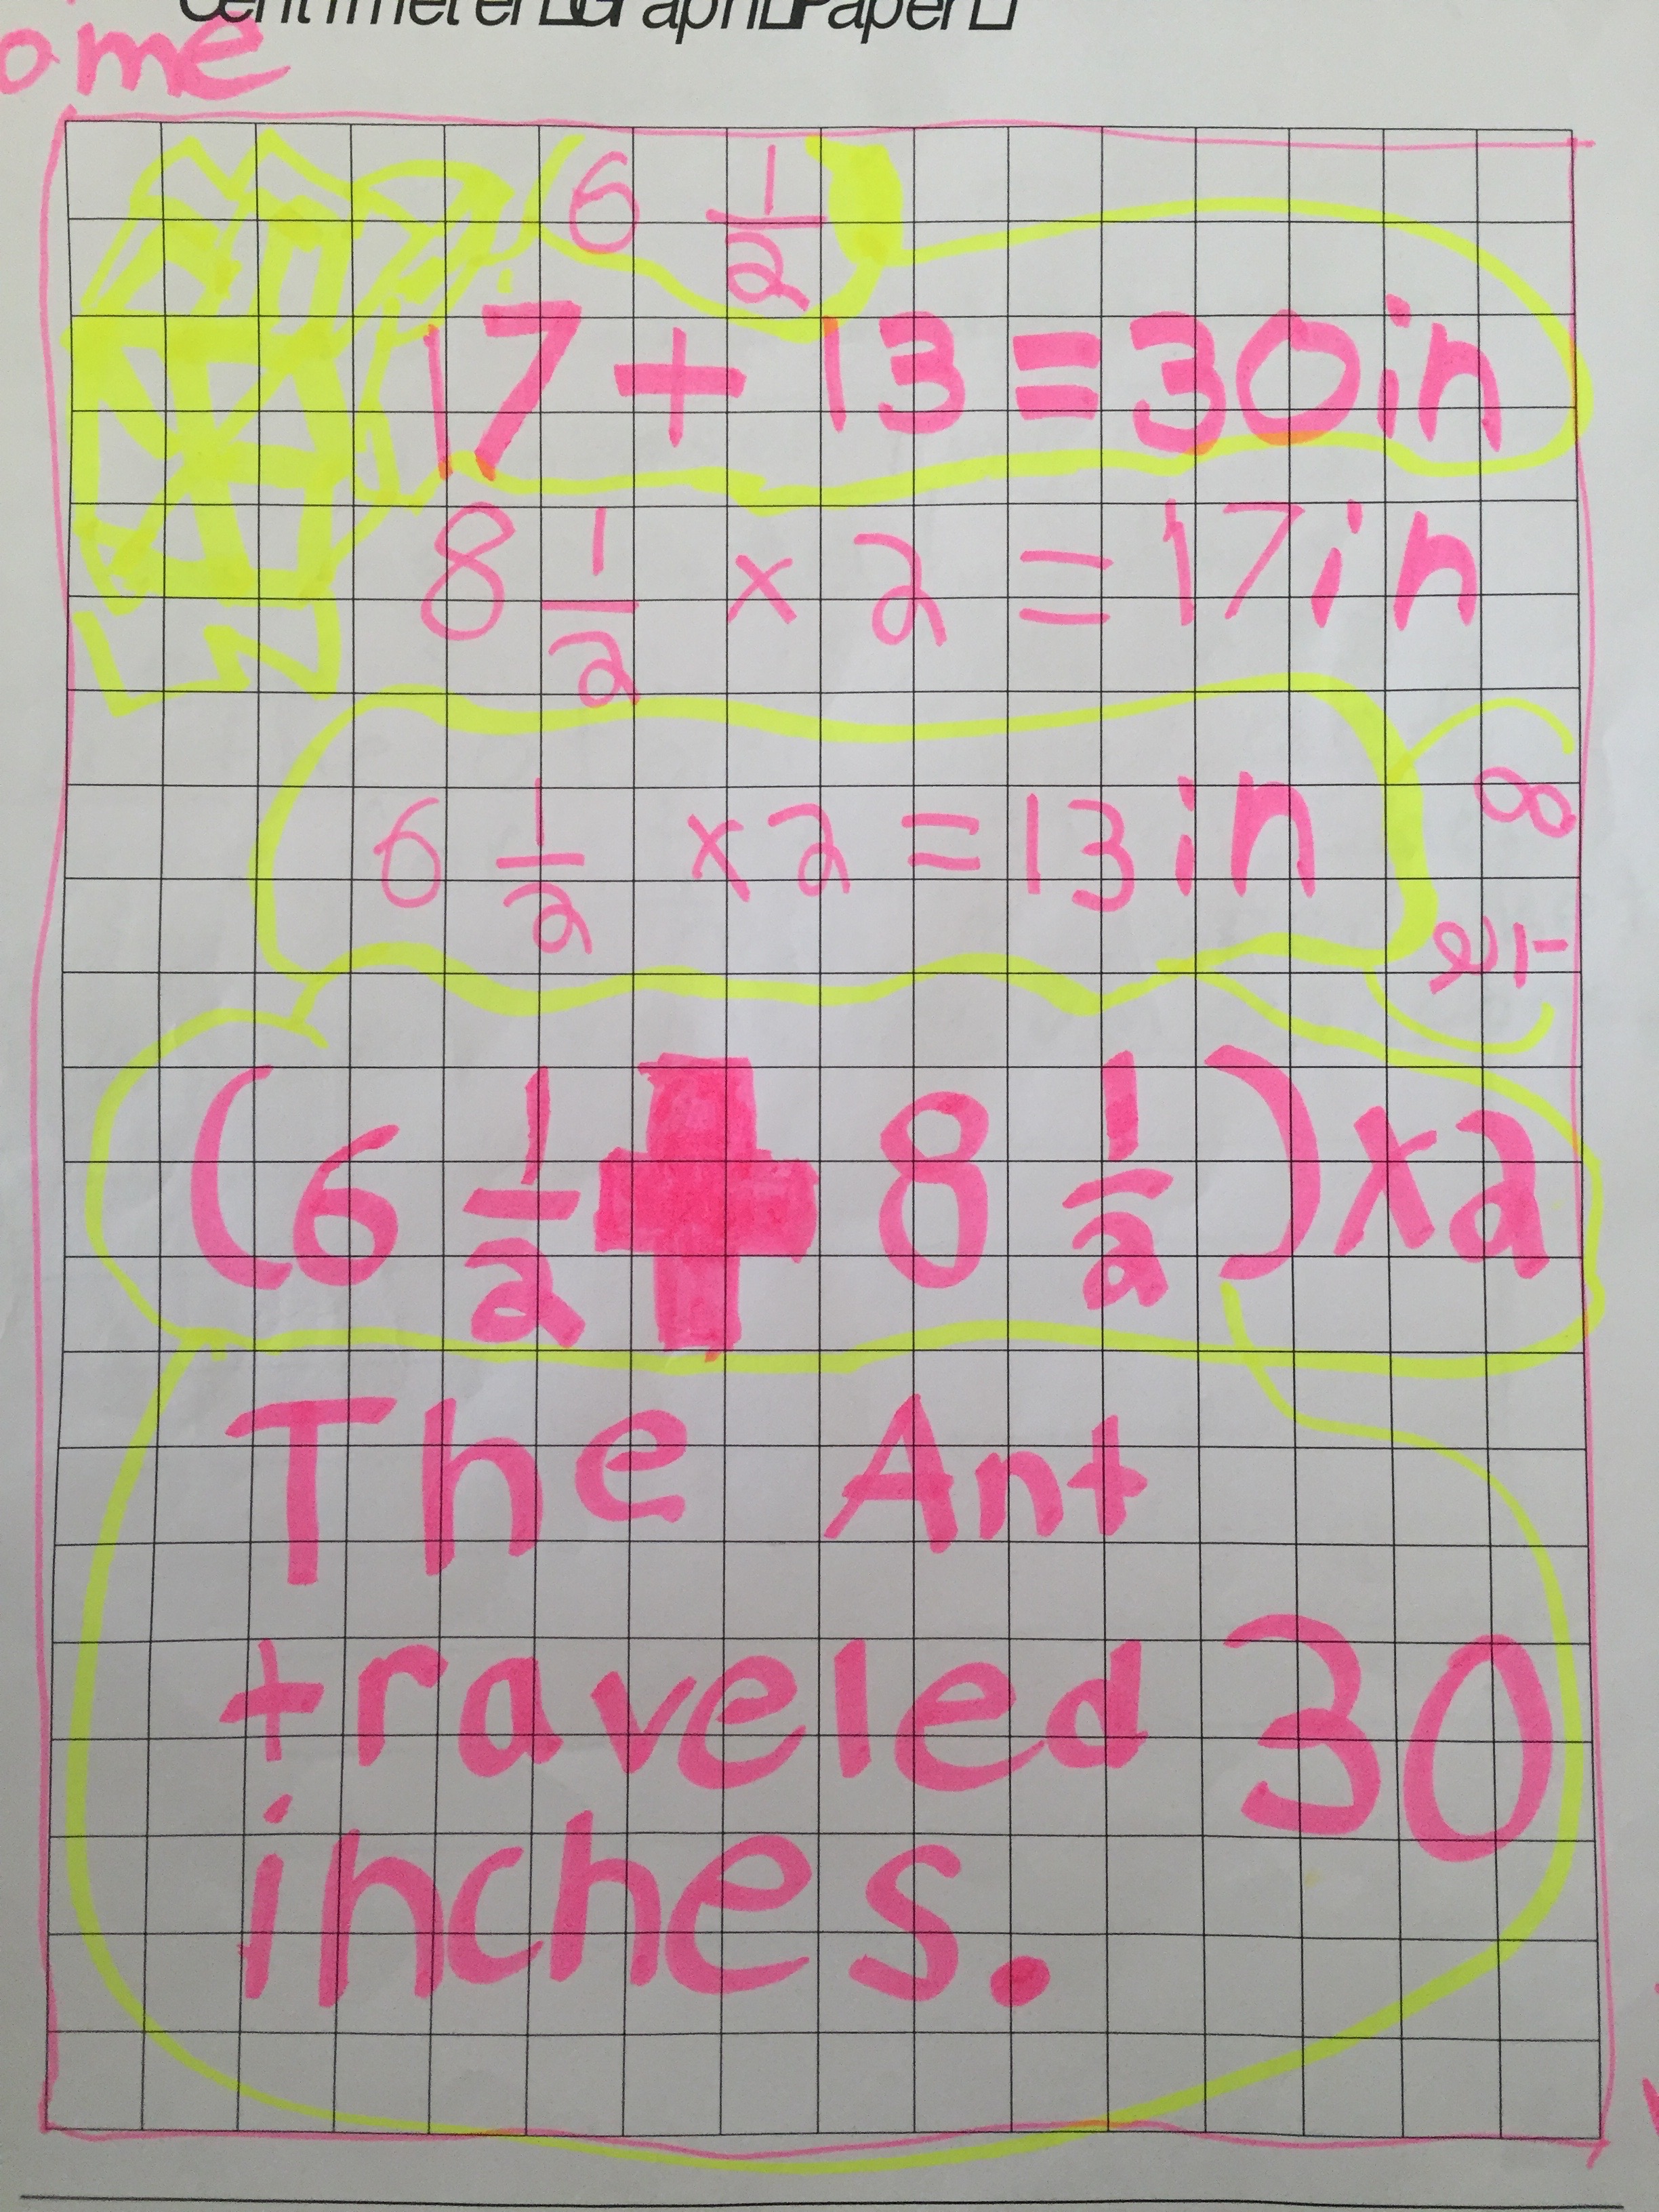 Centimeter Graph Paper
ome
6 1/2
17 + 13 = 30in
8 1/2 x 2 = 17in
6 1/2 x 2 = 13in
8 1/2
(6 1/2 + 8 1/2) x 2
The Ant
traveled 30
inches.